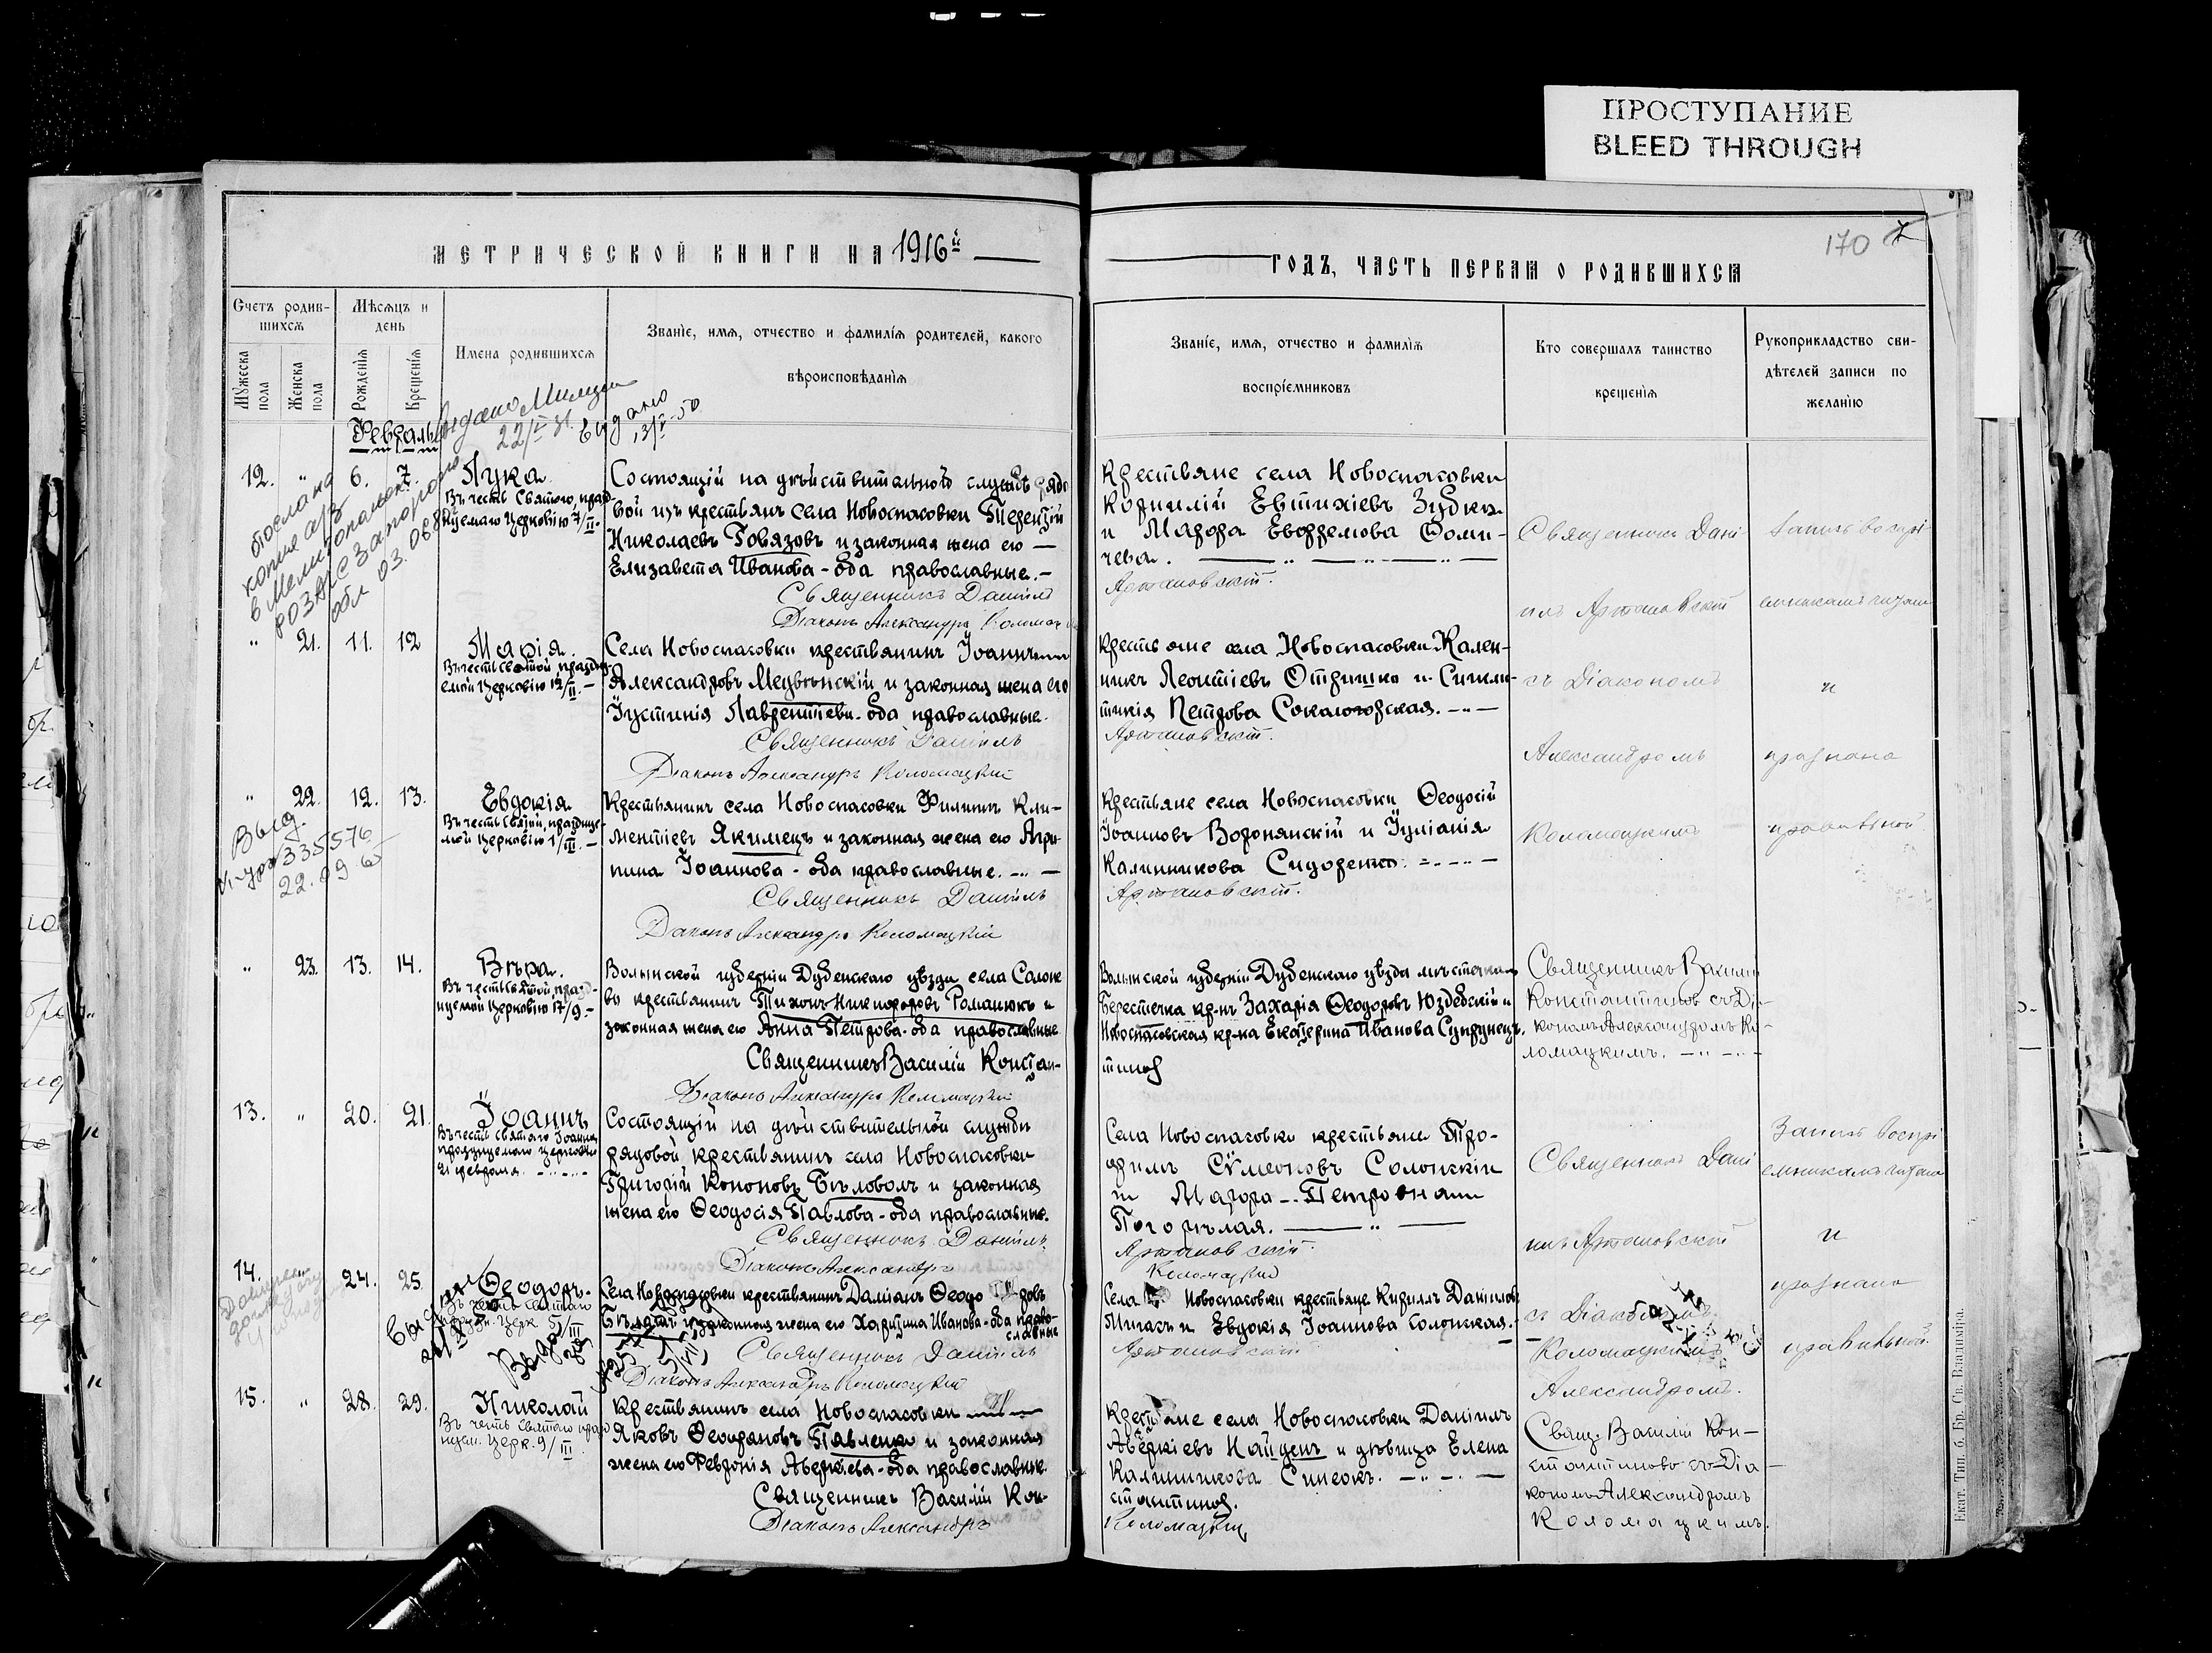 ПРОСТУПАНИЕ
BLEED THROUGH
170
МЕТРИЧЕСКОЙ КНИГИ НА 1916й
ГОДЪ, ЧАСТЬ ПЕРВАЯ О РОДИВШИХСЯ
Счетъ родив-
шихся
Мужеска пола
Женска пола
Мѣсяцъ и
день
Рожденія
Крещенія
Имена родившихся
Званіе, имя, отчество и фамилія родителей, какого
вѣроисповѣданія
Званіе, имя, отчество и фамилія
воспріемниковъ
Кто совершалъ таинство
крещенія
Рукоприкладство сви-
дѣтелей записи по
желанію
Февраль
выдано
22/V
выдано
13/V-50
12. " 6. 7.
Лука.
Въ честь Святого, празд-
нуемаго Церковію 7/II.
отослано
копие а/з
в Мелитополь
Состоящій на дѣйствительной службѣ рядо
вой изъ крестьянъ села Новоспасовки Терентій
Николаевъ Говязовъ и законная жена его —
Елизавета Иванова - оба православные. —
Священникъ Даніилъ
Діаконъ Александръ
Крестьяне села Новоспасовки
Корнилій Евтихіевъ Зубко
и Мавра Евфремова Фоми-
чева.
Артановскій.
Священникъ Дані-
илъ Артановскій
Запись воспрі-
емниками читана
" 21. 11. 12
Марія.
Въ честь святой, праздну-
емой Церковію 12/II. —
Села Новоспасовки крестьянинъ Іоаннъ
Александровъ и законная жена его
Іустинія Лаврентіева - оба православные.
Священникъ Даніилъ
Діаконъ Александръ Коломацкій
Крестьяне села Новоспасовки Кален-
никъ Леонтіевъ Отришко и Синкли-
тикія Петрова Сокологорская. —
Артановскій.
съ Діакономъ
Александромъ
и
признана
" 22. 12. 13.
Евдокія.
Въ честь Святой, праздну-
мой Церковію 1/III. —
Выд.
335576
22.09
Крестьянинъ села Новоспасовки Филиппъ Кли-
ментіевъ Якимецъ и законная жена его Агри-
пина Іоаннова - оба православные. —
Священникъ Даніилъ
Діаконъ Александръ Коломацкій
Крестьяне села Новоспасовки Ѳеодосій
Іоанновъ Воронянскій и Іуліанія
Калинникова Сидоренко.
Артановскій.
Коломацкимъ
правильной
" 23. 13. 14.
Вѣра.
Въ честь Святой, празд-
нуемой Церковію 17/9 —
Волынской губерніи Дубенскаго уѣзда села
крестьянинъ Тихонъ Никифоровъ Романюкъ и
законная жена его Анна Петрова - оба православные
Священникъ Василій Констан-
Діаконъ Александръ Коломацкій
Волынской губерніи Дубенскаго уѣзда мѣстечка
Берестечка кр-нъ Захарія Ѳеодоровъ и
Новоспасовская кр-ка Екатерина Иванова Супрунецъ.
тиновъ
Священникъ Василій
Константиновъ съ Ді-
кономъ Александромъ Ко-
ломацкимъ.
13. " 20. 21.
Іоаннъ
Въ честь святого Іоанна
празднуемаго церковью
21 февраля.
Состоящій на дѣйствительной службѣ
рядовой, крестьянинъ села Новоспасовки
Григорій Кононовъ Бѣловолъ и законная
жена его Ѳеодосія Павлова - оба православные.
Священникъ Даніилъ
Діаконъ Александръ
Села Новоспасовки крестьяне Тро-
фимъ Сѵмеоновъ Солонскій
и Мавра Петрова
Погорѣлая.
Артановскій.
Коломацкій
Священникъ Дані
илъ Артановскій
Запись воспрі
емниками читана
и
признана
14. 24. 25.
Ѳеодоръ.
Въ честь святаго
праздн. Церк. 5/III
Села Новоспасовки крестьянинъ Даміанъ Ѳеодоровъ
и законная жена его Харитина Иванова - оба право-
славные
Священникъ Даніилъ
Діаконъ Александръ Коломацкій
Села Новоспасовки крестьяне Кириллъ Даніиловъ
и Евдокія Іоаннова Солонская. —
Артановскій
съ Діакономъ
Коломацкимъ
Александромъ.
правильной.
15. " 28. 29.
Николай
Въ честь Святаго празд
нуем. Церк. 9/III
Крестьянинъ села Новоспасовки
Яковъ Ѳеофановъ Павленко и законная
жена его Февронія Аверкіева - оба православные.
Священникъ Василій Кон-
Діаконъ Александръ
Крестьяне села Новоспасовки Даніилъ
Аверкіевъ Найденъ и дѣвица Елена
Калинникова Синеокъ.
стантиновъ.
Коломацкій
Свящ. Василій Кон-
стантиновъ съ Діа-
кономъ Александромъ
Коломацкимъ.
Екат. Тип. б. Бр. Св. Владиміра.